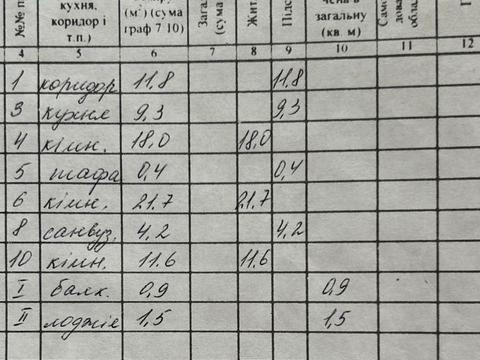 №№ п
кухня,
коридор і
т.п.)
(м²) (сума
граф 7 10)
Загал
(сума
Жит
Підс
чена в
загальну
(кв. м)
Само
дова
обла
П
4 5 6 7 8 9 10 11 12
1 коридор 11,8 11,8
3 кухня 9,3 9,3
4 кімн. 18,0 18,0
5 шафа 0,4 0,4
6 кімн. 21,7 21,7
8 санвуз. 4,2 4,2
10 кімн. 11.6 11.6
I балк. 0,9 0,9
II лоджія 1,5 1,5